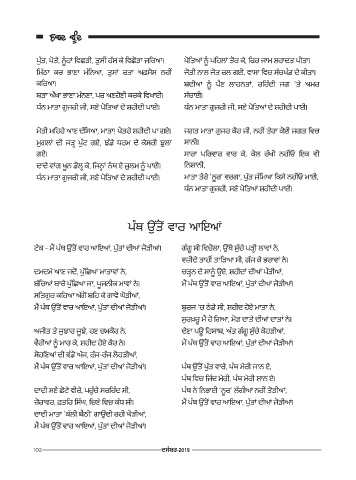 ਪੁੱਤ, ਪੋਤੇ, ਨੂੰਹਾਂ ਵਿਛੜੀ, ਤੁਸੀਂ ਹੱਸ ਕੇ ਵਿਛੋੜਾ ਜਰਿਆ।
ਮਿੱਠਾ ਕਰ ਭਾਣਾ ਮੰਨਿਆ, ਤੁਸਾਂ ਰਤਾ ਅਫ਼ਸੋਸ ਨਹੀਂ
ਕਰਿਆ।
ਬੜਾ ਔਖਾ ਭਾਣਾ ਮੰਨਣਾ, ਪਰ ਅਣਹੋਣੀ ਕਰਕੇ ਵਿਖਾਈ।
ਧੰਨ ਮਾਤਾ ਗੁਜਰੀ ਜੀ, ਸਣੇ ਪੋਤਿਆਂ ਦੇ ਸ਼ਹੀਦੀ ਪਾਈ।
ਮੋਤੀ ਮਹਿਰੇ ਆਣ ਦੱਸਿਆ, ਮਾਤਾ! ਪੋਤਰੇ ਸ਼ਹੀਦੀ ਪਾ ਗਏ।
ਮੁਗ਼ਲਾਂ ਦੀ ਜੜ੍ਹ ਪੁੱਟ ਗਏ, ਝੰਡੇ ਧਰਮ ਦੇ ਕੇਸਰੀ ਝੁਲਾ
ਗਏ।
ਦਾਦੇ ਵਾਂਗ ਖੂਨ ਡੋਲ੍ਹ ਕੇ, ਜਿਨ੍ਹਾਂ ਨੱਥ ਏ ਜ਼ੁਲਮ ਨੂੰ ਪਾਈ।
ਧੰਨ ਮਾਤਾ ਗੁਜਰੀ ਜੀ, ਸਣੇ ਪੋਤਿਆਂ ਦੇ ਸ਼ਹੀਦੀ ਪਾਈ।
ਪੋਤਿਆਂ ਨੂੰ ਪਹਿਲਾਂ ਤੋਰ ਕੇ, ਫਿਰ ਜਾਮ ਸ਼ਹਾਦਤ ਪੀਤਾ।
ਜੋਤੀ ਨਾਲ ਜੋਤ ਰਲ ਗਈ, ਵਾਸਾ ਵਿਚ ਸੱਚਖੰਡ ਦੇ ਕੀਤਾ।
ਬਦੀਆ ਨੂੰ ਪੈਣ ਲਾਹਨਤਾਂ, ਰਹਿੰਦੀ ਜਗ 'ਤੇ ਅਮਰ
ਸੱਚਾਈ।
ਧੰਨ ਮਾਤਾ ਗੁਜਰੀ ਜੀ, ਸਣੇ ਪੋਤਿਆਂ ਦੇ ਸ਼ਹੀਦੀ ਪਾਈ।
ਜਗਤ ਮਾਤਾ ਗੁਜਰ ਕੌਰ ਜੀ, ਨਹੀਂ ਤੇਰਾ ਕੋਈ ਜਗਤ ਵਿਚ
ਸਾਨੀ।
ਸਾਰਾ ਪਰਿਵਾਰ ਵਾਰ ਕੇ, ਕੋਲ ਰੱਖੀ ਨਹੀਓਂ ਇਕ ਵੀ
ਨਿਸ਼ਾਨੀ,
ਮਾਤਾ ਤੇਰੇ 'ਨੂਰ' ਵਰਗਾ, ਪੁੱਤ ਜੰਮਿਆ ਕਿਸੇ ਨਹੀਓਂ ਮਾਈ,
ਧੰਨ ਮਾਤਾ ਗੁਜਰੀ, ਸਣੇ ਪੋਤਿਆਂ ਸ਼ਹੀਦੀ ਪਾਈ।
ਪੰਥ ਉੱਤੋਂ ਵਾਰ ਆਇਆਂ
ਟੇਕ - ਮੈਂ ਪੰਥ ਉੱਤੋਂ ਵਾਰ ਆਇਆਂ, ਪੁੱਤਾਂ ਦੀਆਂ ਜੋੜੀਆਂ।
ਦਮਦਮੇ ਆਣ ਜਦੋਂ, ਪੁੱਛਿਆ ਮਾਤਾਵਾਂ ਨੇ,
ਬੱਚਿਆਂ ਬਾਰੇ ਪੁੱਛਿਆ ਜਾਂ, ਪੂਜਨੀਕ ਮਾਵਾਂ ਨੇ।
ਸਤਿਗੁਰ ਕਹਿਆ ਅੱਗੋਂ ਬਹਿ ਕੇ ਗਾਵੋ ਘੋੜੀਆਂ,
ਮੈਂ ਪੰਥ ਉੱਤੋਂ ਵਾਰ ਆਇਆਂ, ਪੁੱਤਾਂ ਦੀਆਂ ਜੋੜੀਆਂ।
ਅਜੀਤ ਤੇ ਜੁਝਾਰ ਜੂਝੇ, ਹਣ ਚਮਕੌਰ ਨੇ,
ਵੈਰੀਆਂ ਨੂੰ ਮਾਰ ਕੇ, ਸ਼ਹੀਦ ਹੋਏ ਸ਼ੇਰ ਨੇ।
ਸ਼ੇਰਣਿਆਂ ਦੀ ਵੰਡੋ ਅੱਜ, ਰੱਜ-ਰੱਜ ਲੋਹੜੀਆਂ,
ਮੈਂ ਪੰਥ ਉੱਤੋਂ ਵਾਰ ਆਇਆਂ, ਪੁੱਤਾਂ ਦੀਆਂ ਜੋੜੀਆਂ।
ਦਾਦੀ ਸਣੇ ਛੋਟੇ ਵੀਰੇ, ਪਹੁੰਚੇ ਸਰਹਿੰਦ ਸੀ,
ਜ਼ੋਰਾਵਰ, ਫ਼ਤਹਿ ਸਿੰਘ, ਚਿਣੇ ਵਿਚ ਕੰਧ ਸੀ।
ਦਾਦੀ ਮਾਤਾ 'ਕੱਲੀ ਬੈਠੀ' ਗਾਉਂਦੀ ਰਹੀ ਘੋੜੀਆਂ,
ਮੈਂ ਪੰਥ ਉੱਤੋਂ ਵਾਰ ਆਇਆਂ, ਪੁੱਤਾਂ ਦੀਆਂ ਜੋੜੀਆਂ।
ਗੰਗੂ ਸੀ ਵਿਹੇਲਾ, ਉੱਥੇ ਸੁੱਚੇ ਪਤ੍ਹੀ ਲਾਵਾਂ ਨੇ,
ਵਜ਼ੀਦੇ ਤਾਹੀਂ ਤਾੜਿਆ ਸੀ, ਗੱਜ ਕੇ ਭਰਾਵਾਂ ਨੇ।
ਚੜ੍ਹਨ ਦੋ ਸਾਨੂੰ ਉਏ, ਸ਼ਹੀਦਾਂ ਦੀਆਂ ਪੌੜੀਆਂ,
ਮੈਂ ਪੰਥ ਉੱਤੋਂ ਵਾਰ ਆਇਆਂ, ਪੁੱਤਾਂ ਦੀਆਂ ਜੋੜੀਆਂ।
ਬੁਰਜ 'ਚ ਠੰਡੇ ਸੀ, ਸ਼ਹੀਦ ਹੋਏ ਮਾਤਾ ਨੇ,
ਸੁਰਖ਼ਰੂ ਮੈਂ ਹੋ ਗਿਆ, ਮੋੜ ਦਾਤੇ ਦੀਆਂ ਦਾਤਾਂ ਨੇ।
ਦੇਣਾ ਪਊ ਹਿਸਾਬ, ਅੰਤ ਗੰਗੂ ਸੁੱਚੇ ਕੋਹੜੀਆਂ,
ਮੈਂ ਪੰਥ ਉੱਤੋਂ ਵਾਰ ਆਇਆਂ, ਪੁੱਤਾਂ ਦੀਆਂ ਜੋੜੀਆਂ।
ਪੰਥ ਉੱਤੋਂ ਪੁੱਤ ਵਾਰੇ, ਪੰਥ ਮੇਰੀ ਜਾਨ ਏ,
ਪੰਥ ਵਿਚ ਜਿੰਦ ਮੇਰੀ, ਪੰਥ ਮੇਰੀ ਸ਼ਾਨ ਏ।
ਪੰਥ ਨੇ ਨਿਭਾਈ 'ਨੂਰ' ਲੱਗੀਆਂ ਨਹੀਂ ਤੋੜੀਆਂ,
ਮੈਂ ਪੰਥ ਉੱਤੋਂ ਵਾਰ ਆਇਆਂ, ਪੁੱਤਾਂ ਦੀਆਂ ਜੋੜੀਆਂ।
102
ਦਸੰਬਰ-2019